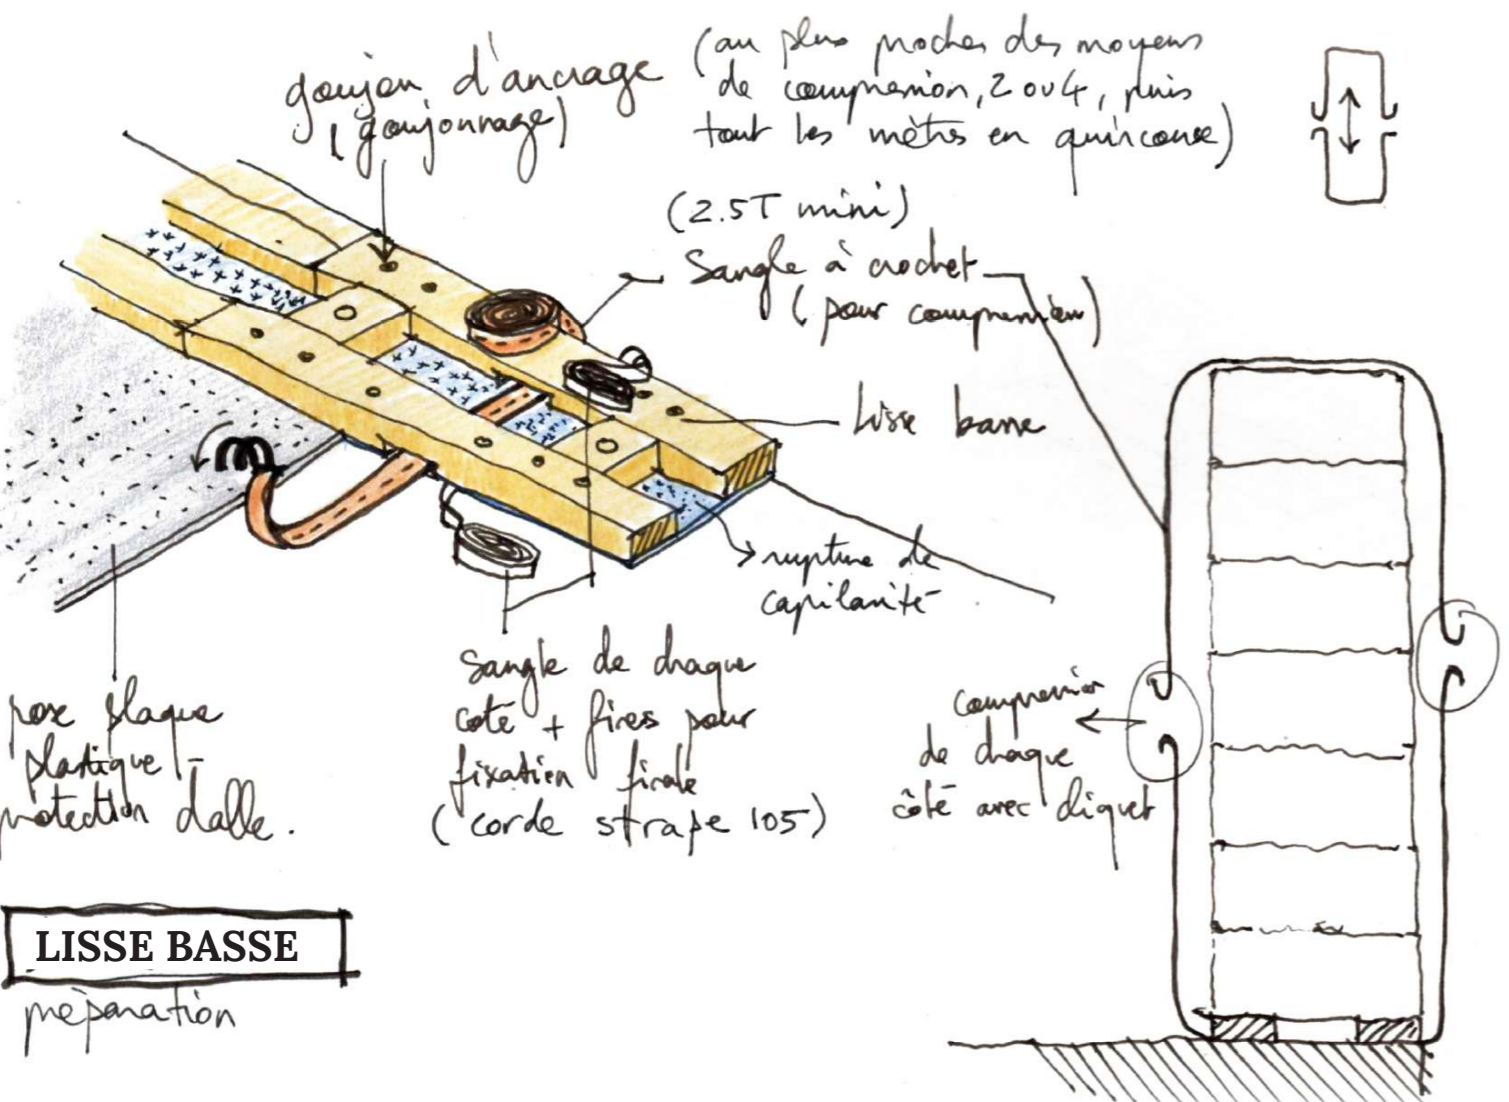 goujon d'ancrage
(goujonnage)
(au plus proches des moyens
de compression, 2 ou 4, puis
tout les mètres en quinconce)
(2.5T mini)
Sangle à crochet
(pour compression)
Lisse basse
rupture de
capilarité
sangle de chaque
coté + fires pour
fixation finale
(corde strape 105)
compression
de chaque
côté avec cliquet
pose plaque
plastique -
protection dalle.
LISSE BASSE
préparation